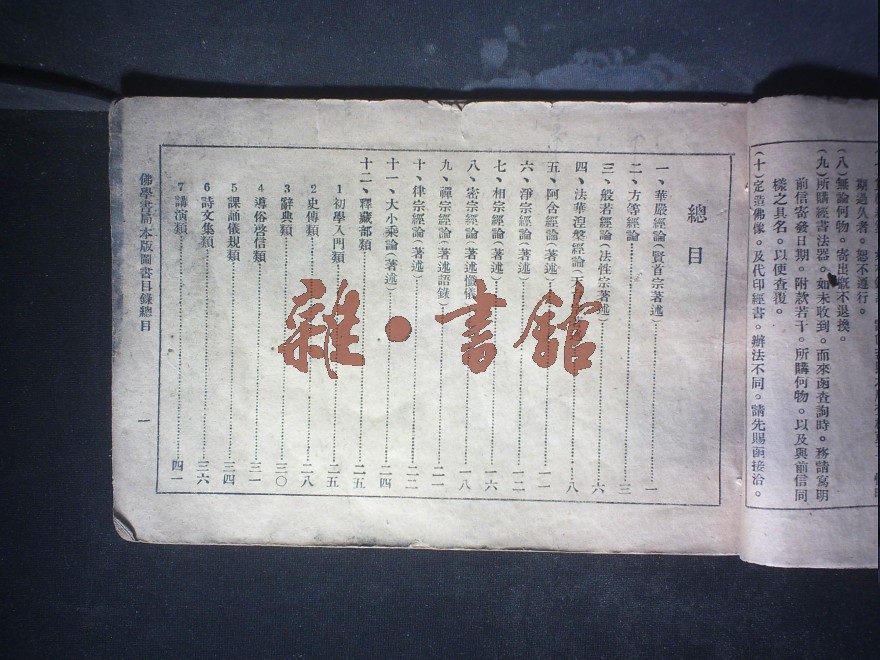 期過久者。恕不進行。
(八)無論何物。寄出概不退換。
(九)所購經書法器。如未收到。而來函查詢時。務請寫明
前信寄發日期。附款若干。所購何物。以及與前信同
樣之具名。以便查覆。
(十)定造佛像。及代印經書。辦法不同。請先賜函接洽。
總目
一、華嚴經論(賢首宗著述)一
二、方等經論三
三、般若經論(法性宗著述)六
四、法華涅槃經論八
五、阿含經論(著述)一一
六、淨宗經論(著述)一二
七、相宗經論(著述)一六
八、密宗經論(著述儀儀)一八
九、禪宗經論(著述語錄)二一
十、律宗經論(著述)二二
十一、大小乘論(著述)二四
十二、釋藏部類二五
1 初學入門類二五
2 史傳類二八
3 辭典類三〇
4 導俗啓信類三一
5 課誦儀規類三四
6 詩文集類三六
7 講演類四一
佛學書局本版圖書目錄總目
一
雜·書館